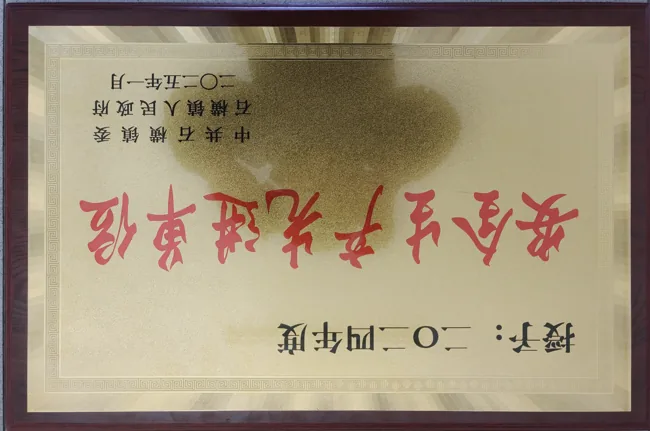 授予：二〇二四年度
安全生产先进单位
中共石横镇委
石横镇人民政府
二〇二五年一月